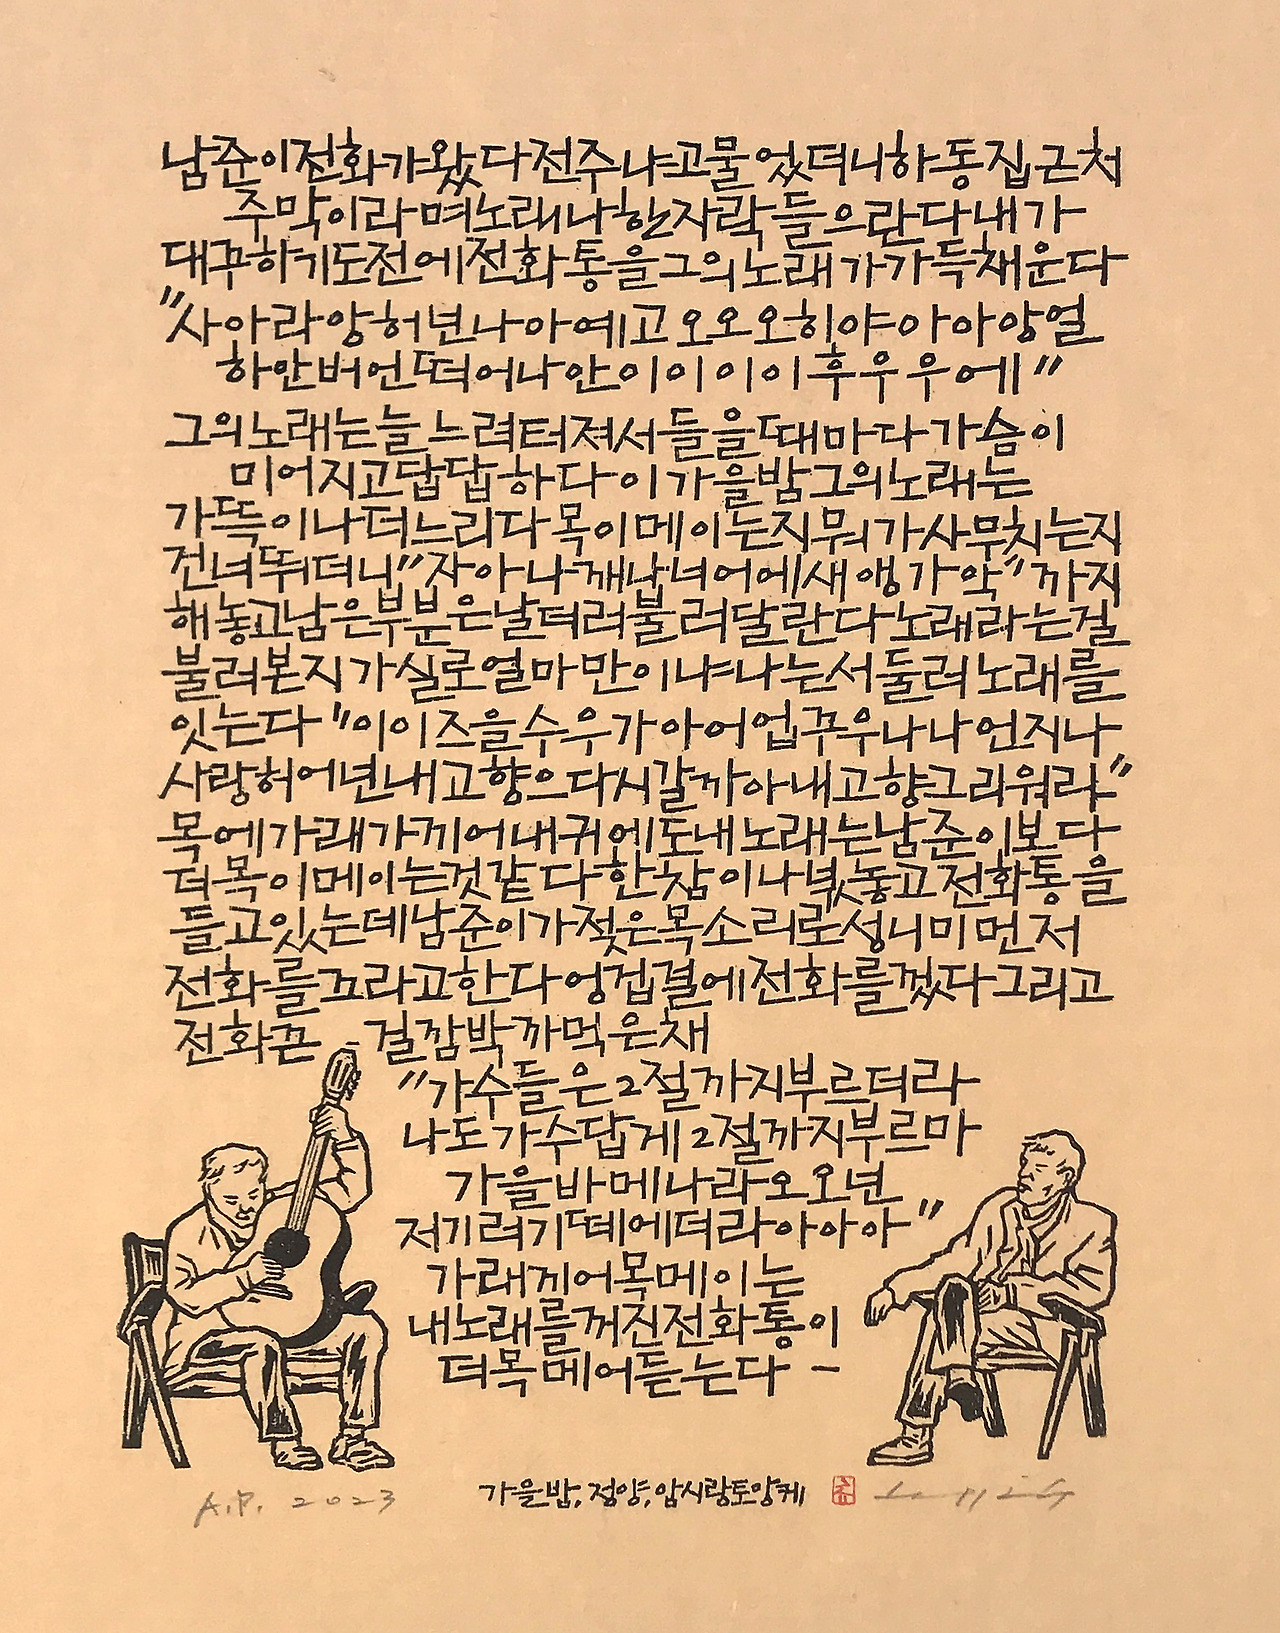 남준이전화가왔다전주냐고물었더니하동집근처
주막이라며노래나한자락들으란다내가
대꾸하기도전에전화통을그의노래가가득채운다
"사아라앙허년나아예고오오오히야아아앙얼
하안버언떠어나안이이이이이후우우에"
그의노래는늘느려터져서들을때마다가슴이
미어지고답답하다이가을밤그의노래는
가뜩이나더느리다목이메이는지뭐가사무치는지
건너뛰더니"자아나깨납녀어에새앵가악"까지
해놓고남은부분은날더러불러달란다노래라는걸
불러본지가실로얼마만이냐나는서둘러노래를
잇는다"이이즈을수우가아어업꾸우나나언지나
사랑허어년내고향으다시갈까아내고향그리워라"
목에가래가끼어내귀에도내노래는남준이보다
더목이메이는것같다한참이나넋놓고전화통을
들고있는데남준이가젖은목소리로성니미먼저
전화를끄라고한다엉겁결에전화를껐다그리고
전화끈걸깜박까먹은채
"가수들은2절까지부르더라
나도가수답게2절까지부르마
가을바메나라오오년
저기려기떼에더라아아아"
가래끼어목메이는
내노래를꺼진전화통이
더목메어듣는다-
가을밤,정양,암시랑토앙케
A.P. 2023